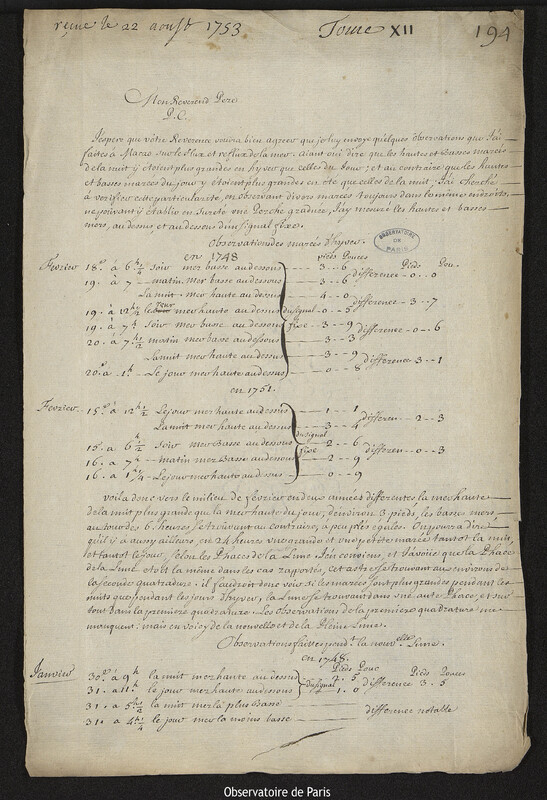 reçue le 22 aoust 1753 Tome XII 194
Mon Reverend Pere
P.C.
J'espere que vôtre Reverence voudra bien agreer que je luy envoye quelques observations que j'ai
faites à Macao sur le flux et reflux de la mer. Aiant oui dire que les hautes et basses marées
de la nuit y étoient plus grandes en hyver que celles du jour; et au contraire que les hautes
et basses marées du jour y étoient plus grandes en été que celles de la nuit, J'ai cherché
à verifier cette particularité, en observant divers marées toujours dans le même endroit.
ne pouvant y établir en sureté une Perche graduée, J'ay mesuré les hautes et basses
mers, au dessus et au dessous d'un signal fixe.
Observations des marées d'hyver.
OBSERVATOIRE DE PARIS
en 1748 pieds Pouces
Fevrier 18.º à 6h ½ Soir mer basse au dessous 3 - 6 Pieds Pou.
19. à 7 matin mer basse au dessous 3 - 6 difference - 0 - 0
La nuit mer haute au dessus 4 - 0
19. à 12h ½ le jour mer haute au dessus du signal 0 - 5 difference 3 - 7
19. à 7h Soir mer basse au dessous fixe 3 - 9
20. à 7h ½ matin mer basse au dessous 3 - 3 difference - 0 - 6
La nuit mer haute au dessus 3 - 9
20.º à 1h Le jour mer haute au dessus 0 - 8 difference 3 - 1
en 1751.
Fevrier 15.º à 12h ½ Le jour mer haute au dessus 1 - 1
La nuit mer haute au dessus 3 - 4 differen 2 - 3
15. à 6h ½ Soir mer Basse au dessous du signal fixe 2 - 6
16. à 7h matin mer Basse au dessous 2 - 9 differen - 0 - 3
16. à 1h ¼ Le jour mer haute au dessus 0 - 9
voila donc vers le milieu de fevrier en deux années differentes la mer haute
de la nuit plus grande que la mer haute du jour, d'environ 3 pieds, les basses mers,
autour des 6 heures se trouvent au contraire, à peu près égales. On pourra dire
qu'il y a aussi ailleurs, en 24 heures une grande et une petite marée tantot la nuit,
et tantot le jour, selon les Phaces de la Lune. J'en conviens, et J'avoue que la Phace
de la Lune étoit la même dans les cas raportés, cet astre se trouvant aux environs de
la seconde quadrature. il faudroit donc voir si les marées sont plus grandes pendant les
nuits que pendant les jours d'hyver, la Lune se trouvant dans une autre Phace, et sur
tout dans la premiere quadrature. Les observations de la premiere quadrature me
manquent: mais en voicy de la nouvelle et de la Pleine Lune.
Observations faites pendt. la nouvelle Lune.
en 1748.
Pieds Pouc Pieds Pouces
Janvier 30.º à 9h la nuit mer haute au dessus 5
31. à 11h le jour mer haute au dessous du signal 1. 0 difference 3 . 5
31. à 5h ½ la nuit mer la plus Basse
31. à 4h ½ le jour mer la moins basse difference notable
Observatoire de Paris